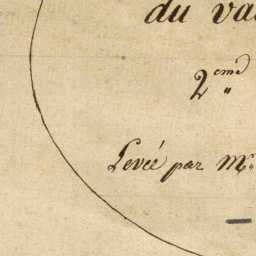 du va
2eme "
Levée par Mr.